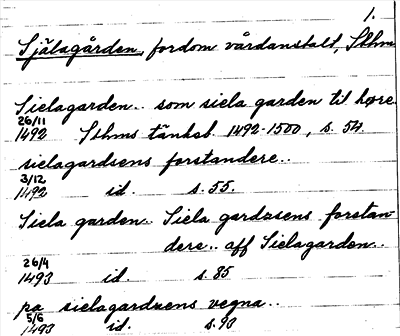 1.
Själagården, fordom vårdanstalt, Sthm
Sielagarden.. som siela garden til høre
26/11
1492 Sthms tänkeb. 1492-1500, s. 54.
sielagardsens forstandere..
3/12
1492 id. s. 55.
Siela garden.. Siela gardzsens forstan-
dere.. aff Sielagarden..
26/4
1493 id. s. 85
pa sielagardzens vegna..
5/6
1493 id. s. 90